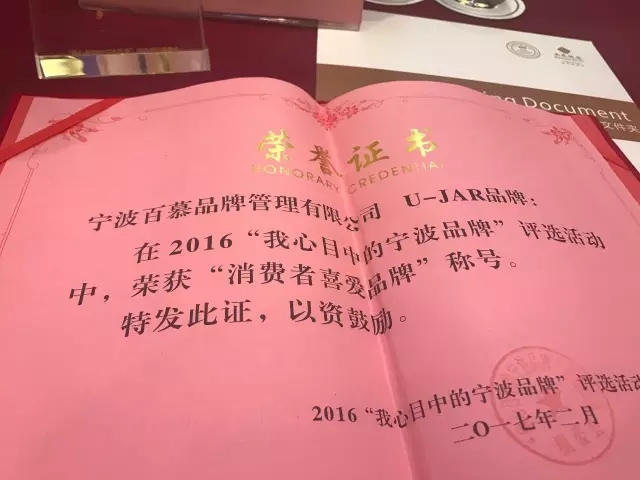 ing Document
文件夹
荣誉证书
HONORARY CREDENTIAL
宁波百慕品牌管理有限公司 U-JAR品牌：
在2016“我心目中的宁波品牌”评选活动
中，荣获“消费者喜爱品牌”称号。
特发此证，以资鼓励。
2016“我心目中的宁波品牌”评选活动
二〇一七年二月